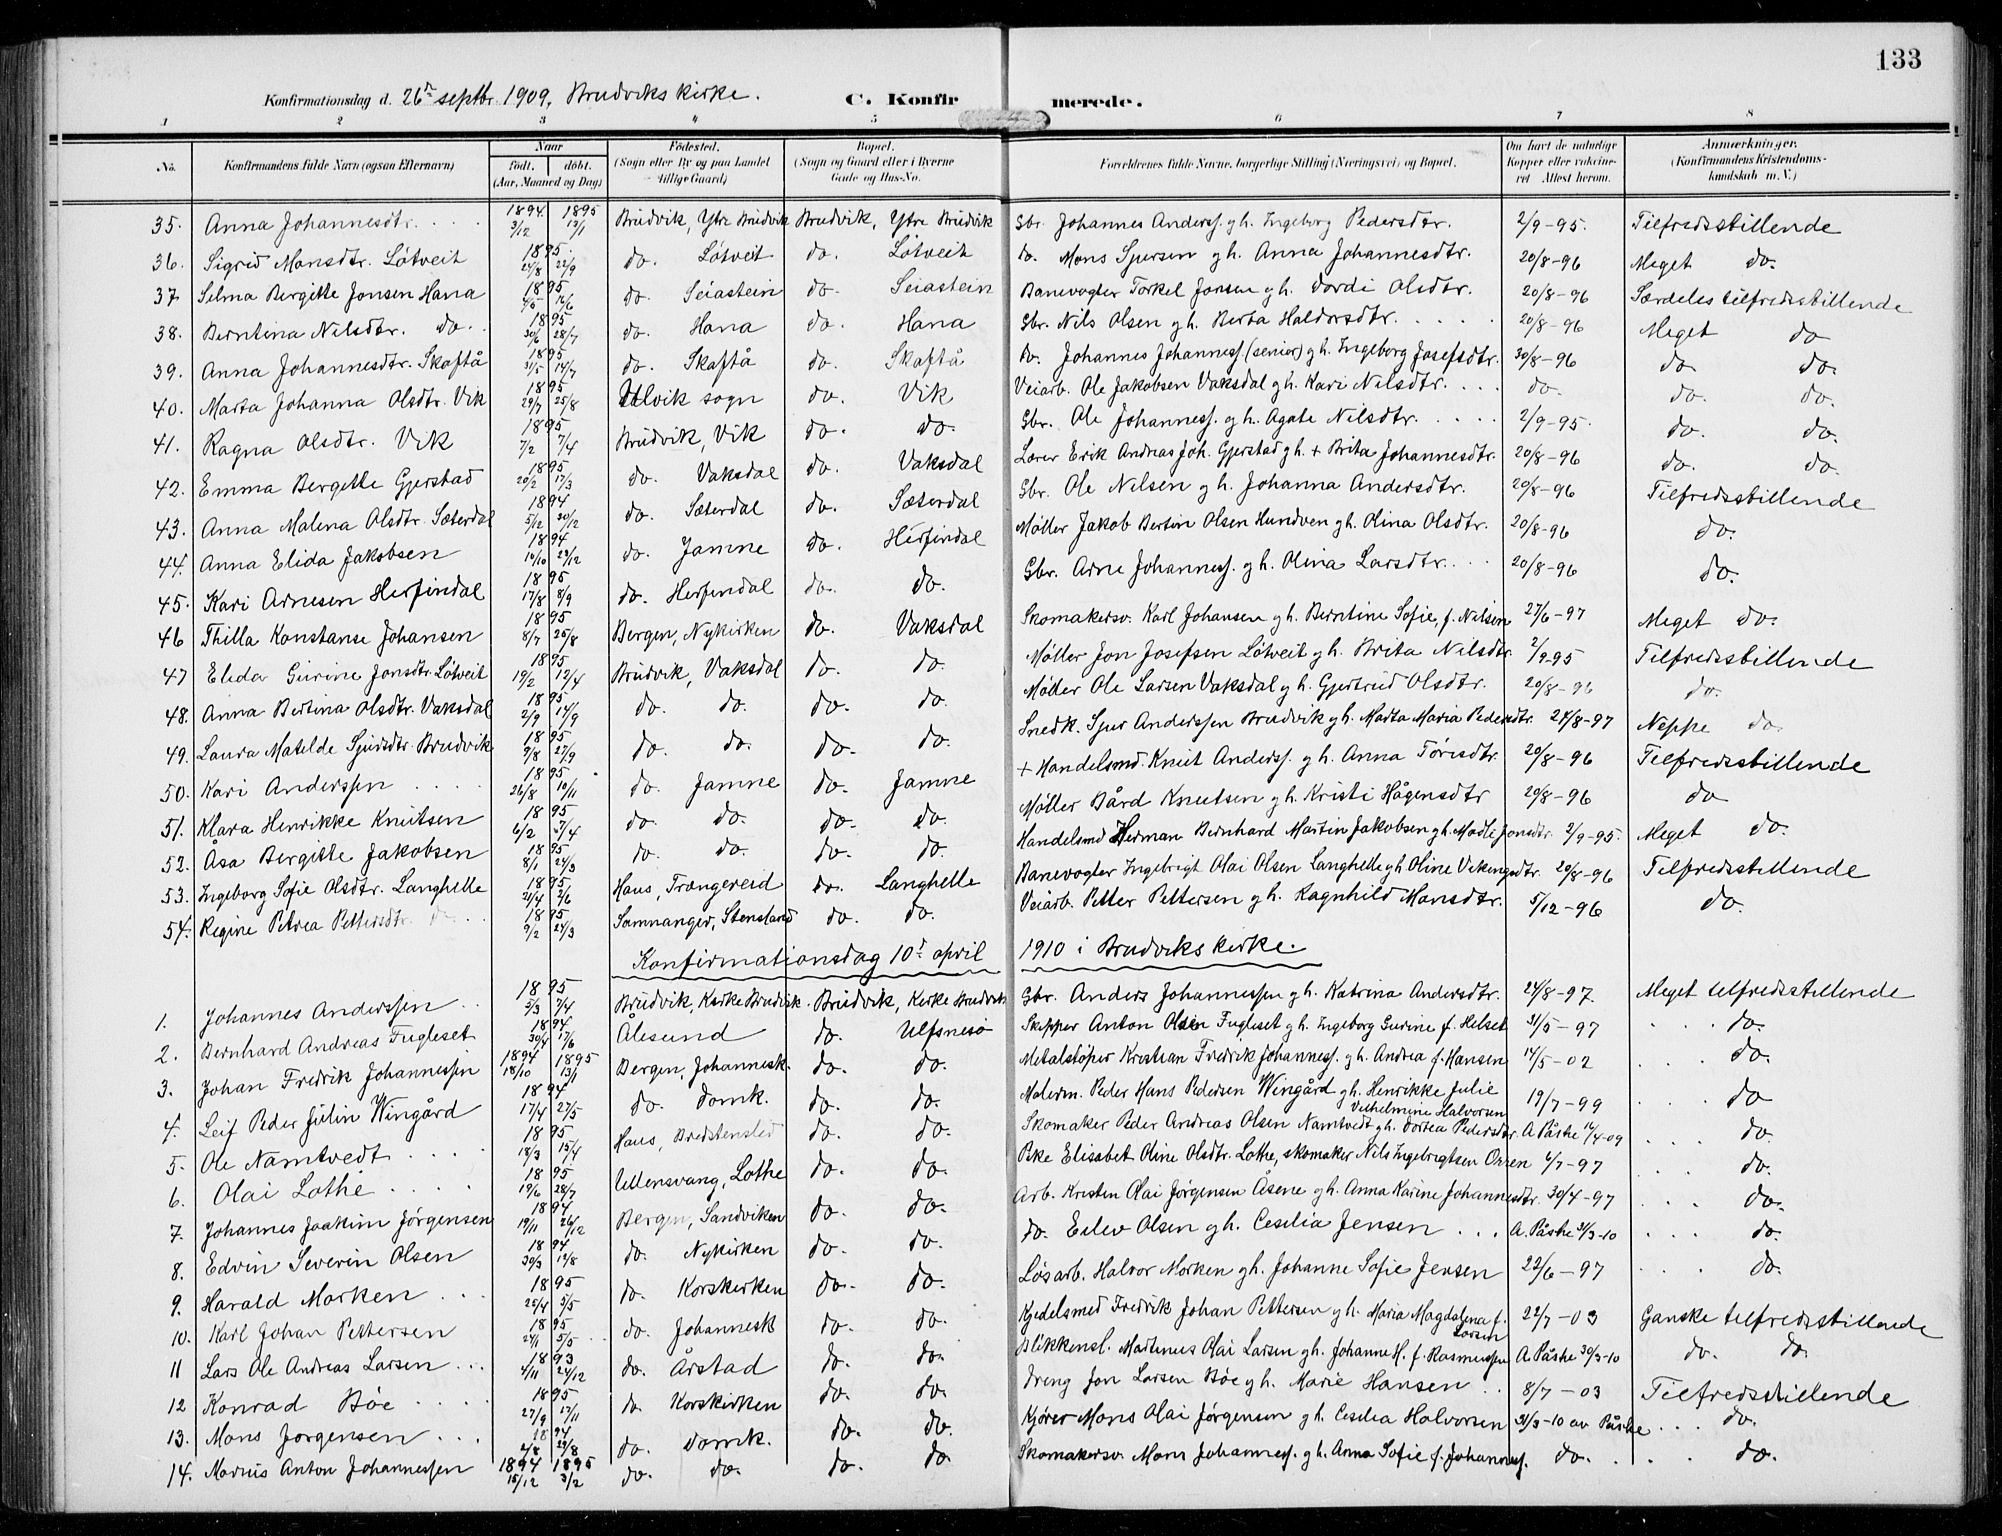 133
Konfirmationsdag d. 26de septbr. 1909, Brudviks kirke. C. Konfirmerede.
1 2 3 4 5 6 7 8
No. Konfirmandens fulde Navn (ogsaa Efternavn) Naar født. døbt. (Aar, Maaned og Dag) Fødested. (Sogn eller By og paa Landet tillige Gaard) Bopæl. (Sogn og Gaard eller i Byerne Gade og Hus-No. Forældrenes fulde Navne, borgerlige Stilling (Næringsvei) og Bopæl. Om havt de naturlige Kopper eller vaccineret Attest herom. Anmærkninger. (Konfirmandens Kristendomskundskab m. V.)
35. Anna Johannesdtr. 1894 3/12 1895 13/1 Brudvik, Ytre Brudvik Brudvik, Ytre Brudvik Gbr. Johannes Anderss. g h. Ingeborg Pedersdtr. 2/9-95. Tilfredsstillende
36. Sigrid Monsdtr. Løtveit 1895 24/8 22/9 do. Løtveit do. Løtveit do. Mons Sjursen g h. Anna Johannesdtr. 20/8-96 Meget do.
37 Selma Bergitte Jonsen Hana 1895 4/5 16/6 do. Seiastein do. Seiastein Banevogter Torkel Jonsen g h. Dordi Olsdtr. 20/8-96 Særdeles tilfredsstillende
38. Berntina Nilsdtr. do. 1895 30/6 28/7 do. Hana do. Hana Gbr. Nils Olsen g h. Berta Haldorsdtr. 20/8-96 Meget do
39. Anna Johannesdtr. Skaftå 1895 31/5 14/7 do. Skaftå do. Skaftå do. Johannes Johanness. (senior) g h. Ingeborg Josefsdtr. 30/8-96 do do.
40. Marta Johanna Olsdtr. Vik 1895 29/7 25/8 Ulvik sogn do. Vik Veiarb. Ole Jakobsen Vaksdal g h. Kari Nilsdtr. do. do. do.
41. Ragna Olsdtr. Vik 1895 7/2 7/4 Brudvik, Vik do. do. Gbr. Ole Johanness. g h. Agate Nilsdtr. 2/9-95. do. do.
42. Emma Bergitte Gjerstad 1895 20/2 17/3 do. Vaksdal do. Vaksdal Lærer Erik Andreas Joh. Gjerstad g h. + Brita Johannesdtr. 20/8-96 do. do.
43. Anna Malena Olsdtr. Sæterdal 1894 5/12 30/12 do. Sæterdal do. Sæterdal Gbr. Ole Nilsen g h. Johanna Andersdtr. 20/8-96 Tilfredsstillende
44. Anna Elida Jakobsen 1894 10/10 29/12 do. Jamne do. Herfindal Møller Jakob Bertin Olsen Hundven g h. Olina Olsdtr. 20/8-96 do.
45. Kari Arnesen Herfindal 1895 17/8 8/9 do. Herfindal do. do. Gbr. Arne Johanness. g h. Olina Larsdtr. 20/8-96 do.
46 Thilla Konstanse Johansen 1895 8/7 25/8 Bergen, Nykirken do. Vaksdal Skomakersv. Karl Johansen g h. Berntine Sofie, f. Nilsen 27/6-97 Meget do.
47 Elida Gurine Jonsdtr. Løtveit 1895 19/2 12/4 Brudvik, Vaksdal do. do. Møller Jon Josefsen Løtveit g h. Brita Nilsdtr. 2/9-95 Tilfredsstillende
48. Anna Bertina Olsdtr. Vaksdal 1895 2/9 14/9 do. do. do. do. Møller Ole Larsen Vaksdal g h. Gjertrud Olsdtr. 20/8-96 do.
49. Laura Matilde Sjursdtr. Brudvik 1895 9/8 27/9 do. do. do. do. Snedk. Sjur Anderssen Brudvik g h. Marta Maria Pedersdtr. 24/8-97 Neppe do.
50. Kari Anderssen 1895 26/8 10/11 do. Jamne do. Jamne + Handelsmd. Knut Anderss. g h. Anna Tørisdtr. 20/8-96 Tilfredsstillende
51. Klara Henrikke Knutsen 1895 6/2 7/4 do. do. do. do. Møller Bård Knutsen g h. Kristi Hågensdtr 20/8-96 do
52. Åsa Bergitte Jakobsen 1895 8/1 24/3 do. do. do. do. Handelsmd Herman Bernhard Martin Jakobsen g h. Madli Jonsdtr. 2/9-95. Meget do.
53. Ingeborg Sofie Olsdtr. Langhelle 1895 21/4 2/6 Haus, Trængereid do. Langhelle Banevogter Ingebrigt Olai Olsen Langhelle g h Oline Vikingsdtr. 20/8-96 Tilfredsstillende
54. Regine Petrea Pettersdtr. do 1895 9/2 24/3 Samnanger, Stensland do. do. Veiarb. Petter Pettersen g h. Ragnhild Monsdtr. 5/12-96 do.
Konfirmationsdag 10de april 1910 i Brudviks kirke.
1. Johannes Anderssen 1895 5/3 7/4 Brudvik, Kirke Brudvik. Brudvik, Kirke Brudvik Gbr. Anders Johannessen g h. Katrina Andersdtr. 24/8-97. Meget tilfredsstillende
2. Bernhard Andreas Fugleset 1894 30/4 17/6 Ålesund do. Ulfsnesø Skipper Anton Olsen Fugleset g h. Ingeborg Gurine f. Helset 31/5-97 do.
3. Johan Fredrik Johannessen 1894 18/10 1895 13/1 Bergen, Johannesk. do. do. Metalstøper Kristian Fredrik Johanness. g h. Andrea f. Hansen 14/5-02 do.
4. Leif Peder Julin Wingård 1894 17/4 27/5 do. Domk. do. do. Malerm. Peder Hans Pedersen Wingård g h. Henrikke Julie Vilhelmine Halvorsen 19/7-99 do
5. Ole Namtvedt 1895 18/3 15/4 Haus, Bredstensled do. do. Skomaker Peder Andreas Olsen Namtvedt g h. Dortea Pedersdtr. A Påske 12/4-09 do.
6. Olai Lothe 1895 19/6 28/7 Ullensvang, Lothe do. do. Pike Elisabet Oline Olsdtr. Lothe, skomaker Nils Ingebrigtsen Ohren 6/7-97 do.
7. Johannes Joakim Jørgensen 1894 19/11 26/12 Bergen, Sandviken do. do. Arb. Kristen Olai Jørgensen Åsene g h. Anna Karine Johannesdtr. 30/4-97 do.
8. Edvin Severin Olsen 1894 30/3 12/8 do. Nykirken do. do. do. Eilev Olsen g h. Cesilia Jensen A. Påske 31/3-10 do.
9. Harald Morken 1895 25/4 5/5 do. Korskirken do. do. Løsarb. Halvor Morken g h. Johanne Sofie Jensen 22/6-97 do.
10. Karl Johan Pettersen 1895 24/1 5/5 do. Johannesk do. do. Kjedelsmed Fredrik Johan Pettersen g h. Maria Magdalena f. Larsen 22/7-03 Ganske tilfredsstillende
11 Lars Ole Andreas Larsen 1893 4/11 24/12 do. Årstad do. do. Blikkensl. Martinus Olai Larsen g h. Johanne H. f. Rasmussen A Påske 30/3-10 do. do.
12 Konrad Bøe 1895 27/9 17/11 do. Korskirken do. do. Dreng Jon Larsen Bøe g h. Marie Hansen 8/7-03 Tilfredsstillende
13. Mons Jørgensen 1894 2/8 29/8 do. Domk. do. do. Kjører Mons Olai Jørgensen g h. Cesilia Halvorsen 31/3-10 av Påske do.
14. Marius Anton Johannessen 1894 15/12 1895 3/2 do. do. do. do. Skomakersv. Mons Johanness. g h. Anna Sofie f. Johanness. do. do.